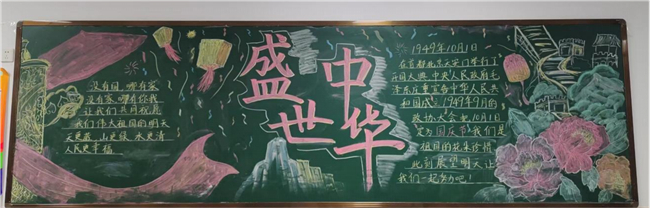 没有国 哪有家
没有家 哪有你我
让我们共同祝愿
我们伟大祖国的明天
天更蓝、山更绿、水更清
人民更幸福
盛世
中华
1949年10月1日
在首都北京天安门举行了
开国大典,中央人民政府毛
泽东庄重宣告中华人民共
和国成立,1949年9月的
政协大会把10月1日
定为国庆节,我们是
祖国的花朵珍惜
此刻展望明天让
我们一起努力吧!